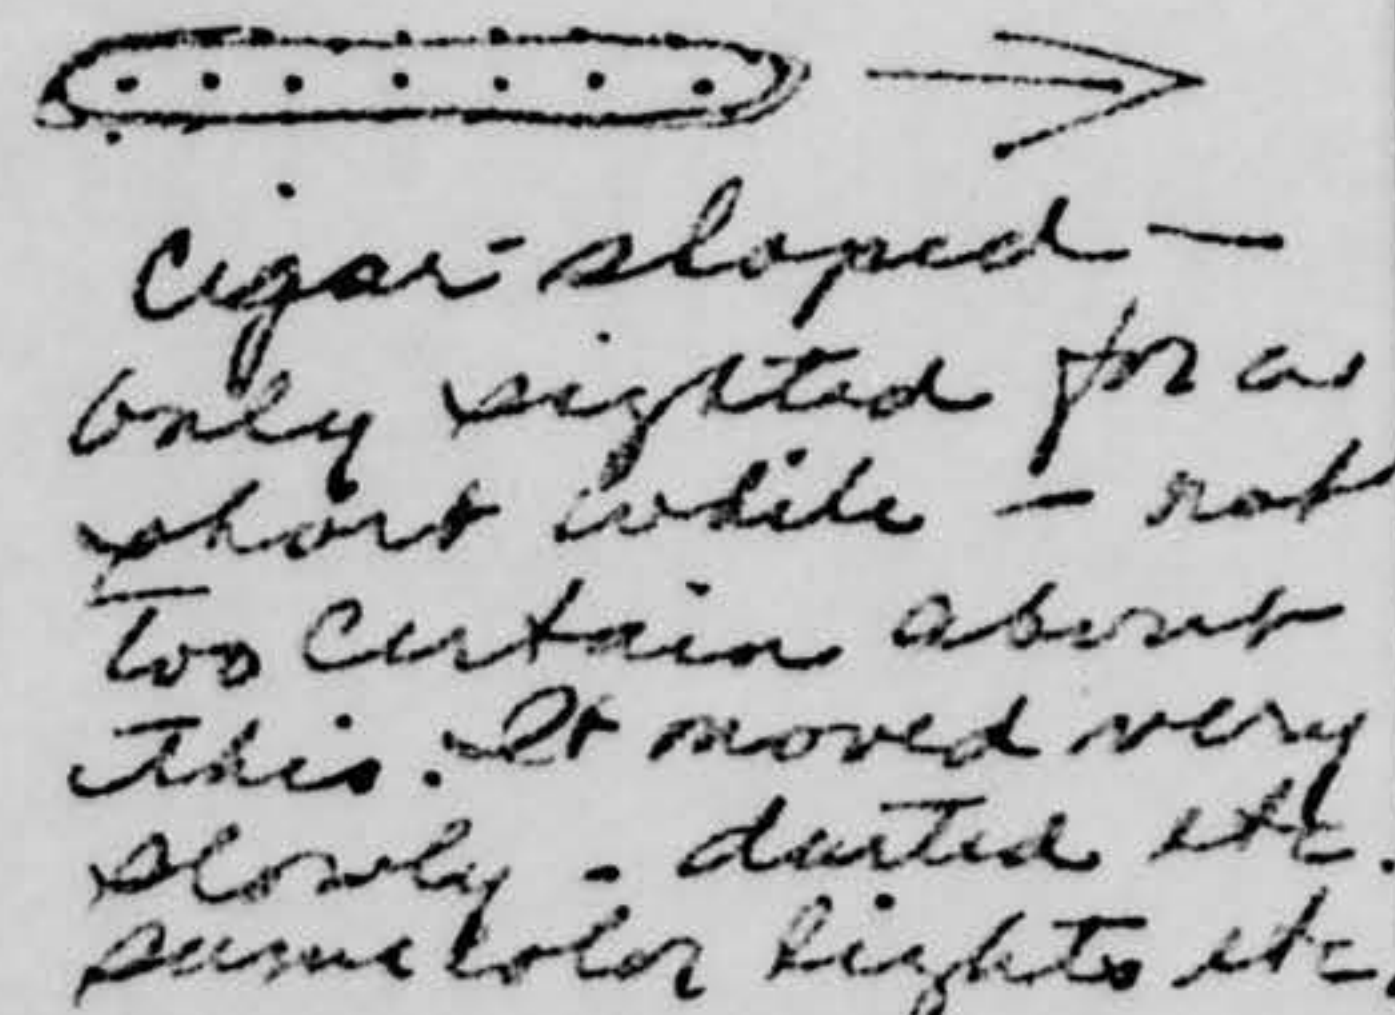 cigar-sloped —
only sighted for a
short while — not
too certain about
this. It moved very
slowly - darted etc.
same color lights etc.